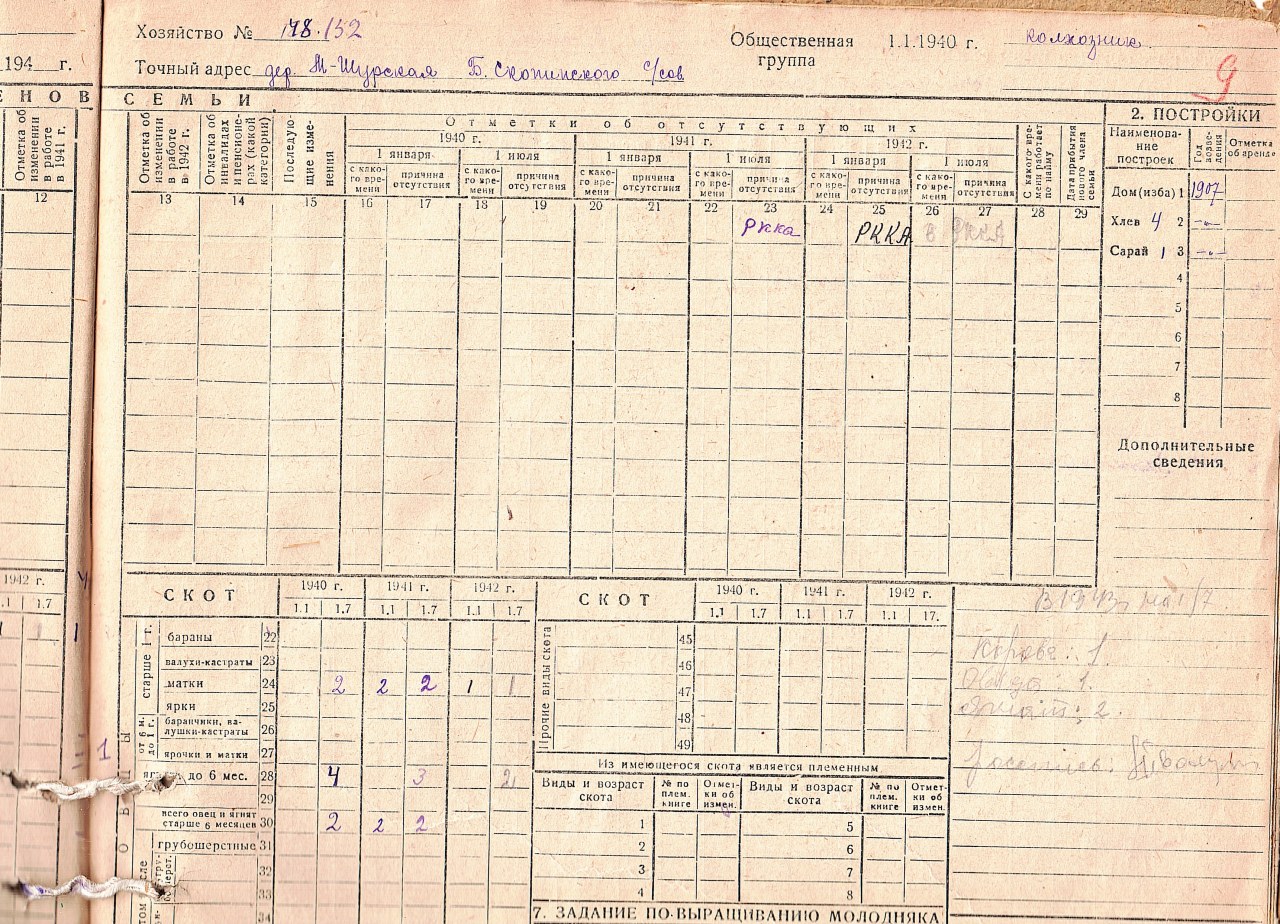 Хозяйство № 148/52
Общественная группа 1.1.1940 г. колхозник
9
194 г. Точный адрес дер. М-Шурская Б. Скопинского с/сов
ЕНОВ СЕМЬИ
Отметка об изменении в работе в 1941 г.
12
Отметка об изменении в работе в 1942 г.
Отметка об инвалидах и пенсионерах (какой категории)
Последующие изменения
Отметки об отсутствующих
1940 г. 1941 г. 1942 г.
1 января 1 июля 1 января 1 июля 1 января 1 июля
с какого времени причина отсутствия с какого времени причина отсутствия с какого времени причина отсутствия с какого времени причина отсутствия с какого времени причина отсутствия с какого времени причина отсутствия
С какого времени работает по найму
Дата прибытия нового члена семьи
13 14 15 16 17 18 19 20 21 22 23 24 25 26 27 28 29
Ркка РККА в РККА
2. ПОСТРОЙКИ
Наименование построек Год возведения Отметка об аренде
Дом (изба) 1 1907
Хлев 4 2 -"-
Сарай 1 3 -"-
4
5
6
7
8
Дополнительные сведения
1942 г.
.1 1.7
1 1 1
СКОТ 1940 г. 1941 г. 1942 г.
1.1 1.7 1.1 1.7 1.1 1.7
старше 1 г.
бараны 22
валухи-кастраты 23
матки 24 2 2 2 1 1
ярки 25
от 6 м. до 1 г.
баранчики, валушки-кастраты 26
ярочки и матки 27
1
до 6 мес. 28 4 3 2
29
всего овец и ягнят старше 6 месяцев 30 2 2 2
грубошерстные 31
32
33
34
СКОТ 1940 г. 1941 г. 1942 г.
1.1 1.7 1.1 1.7 1.1 17.
Прочие виды скота
45
46
47
48
49
Из имеющегося скота является племенным
Виды и возраст скота № по плем. книге Отметки об измен. Виды и возраст скота № по плем. книге Отметки об измен.
1 5
2 6
3 7
4 8
7. ЗАДАНИЕ ПО ВЫРАЩИВАНИЮ МОЛОДНЯКА
В 1943 на 1/7
Корова: 1.
Овца: 1.
Ягнят: 2.